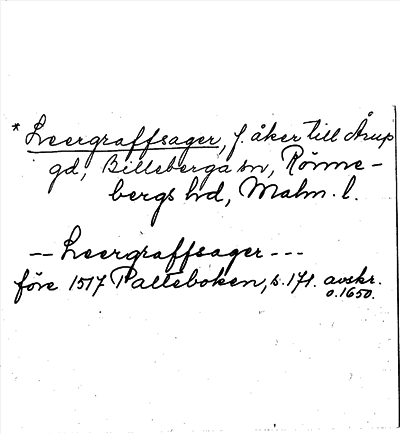 * Leergraffsager, f. åker till Årup
gd, Billeberga sn, Rönne-
bergs hd, Malm. l.
-- Leergraffsager ---
före 1517 Palteboken, s. 171. avskr.
o. 1650.